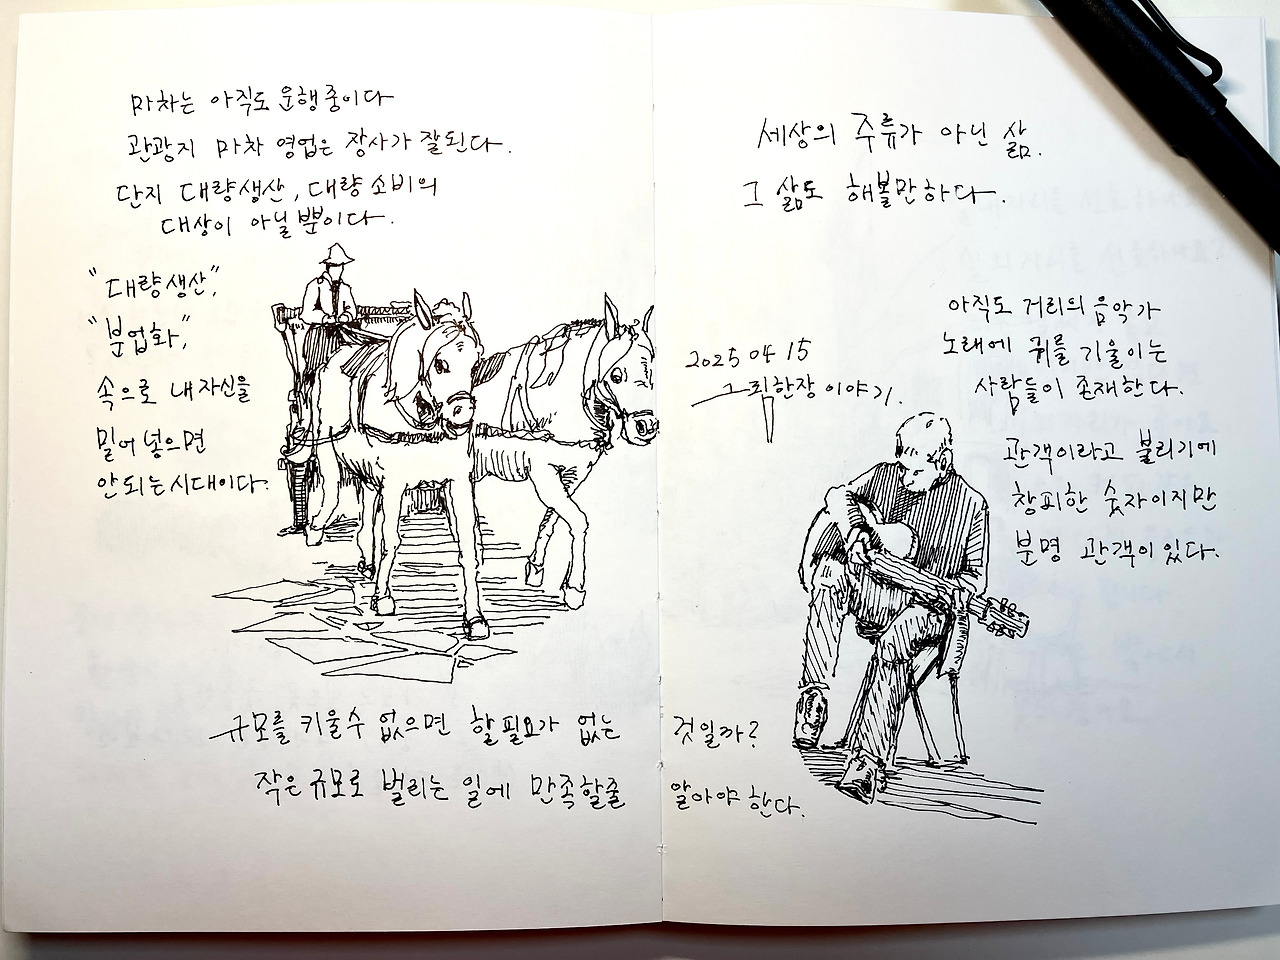 마차는 아직도 운행중이다
관광지 마차 영업은 장사가 잘된다.
단지 대량생산, 대량소비의
대상이 아닐뿐이다.
"대량생산",
"분업화",
속으로 내 자신을
밀어 넣으면
안되는 시대이다.
규모를 키울수 없으면 할 필요가 없는
작은 규모로 벌리는 일에 만족할줄
세상의 주류가 아닌 삶.
그 삶도 해볼만하다.
2025 04 15
그림한장 이야기.
아직도 거리의 음악가
노래에 귀를 기울이는
사람들이 존재한다.
관객이라고 불리기에
창피한 숫자이지만
분명 관객이 있다.
것일까?
알아야 한다.